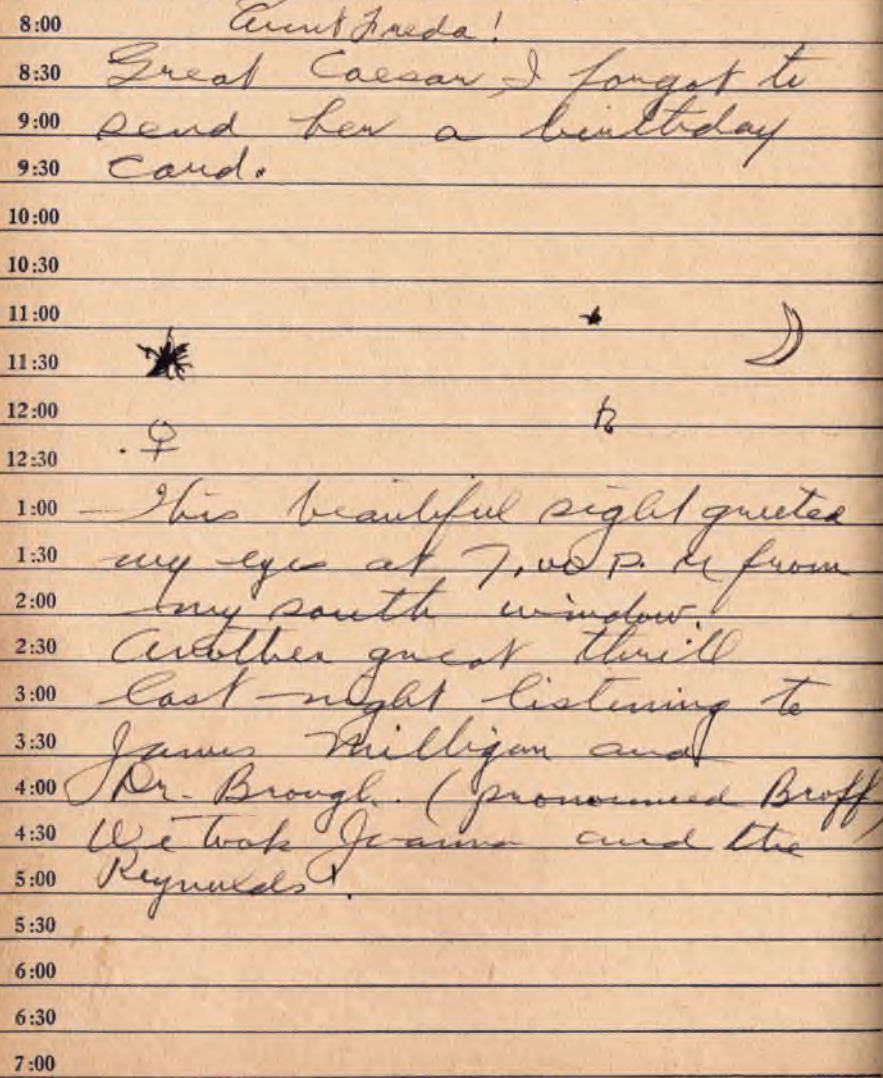 8:00 Aunt Freda!
8:30 Great Caesar I forgot to
9:00 send her a birthday
9:30 card.
10:00
10:30
11:00
11:30
12:00 ♄
♀
12:30
1:00 This beautiful sight greeted
1:30 my eyes at 7,00 P. M from
2:00 my south window.
2:30 Another great thrill
3:00 last night listening to
3:30 James Milligan and
4:00 Dr. Brough. (pronounced Broff)
4:30 We took Joanna and the
5:00 Reynolds.
5:30
6:00
6:30
7:00